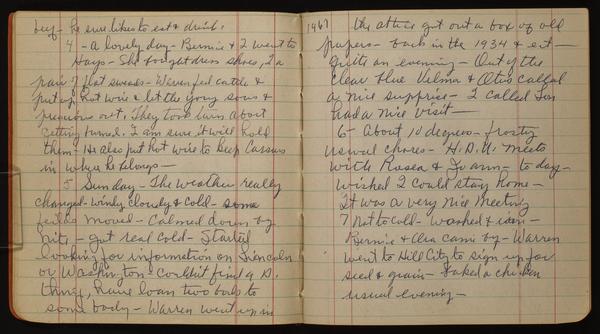 beef - he sure likes to eat & drink.
4 - A lovely day - Bernie & I went to
Hays - She bought dress shoes, I a
pair of flat sweads - Warren fed cattle &
put up hot wire & let the young sows &
previous out. They took turns about
getting turned. I am sure it will hold
them. He also put hot wire to keep Cassius
in where he belongs -
5 Sunday - The weather really
changed - windy cloudy & cold - some
feilds moved - Calmed down by
nite - got real cold - Started
looking for information on Lincoln
or Washington - Couldn't find a D.
thing, have loan two books to
some body - Warren went up in
1967
the attic got out a box of old
papers - back in the 1934 & ect -
Quite an evening - Out of the
clear blue Velma & Otis called
a nice supprise - I called Lin
had a nice visit -
6 - About 10 degrees - frosty
usual chores - H.D.U. meets
with Rosea & Jo ann - to day -
wished I could stay home -
It was a very nice Meeting
7 Not to cold - washed & iron -
Bernie & Clea came by - Warren
went to Hill City to sign up for
seed & grain - Baked a chicken
usual evening -